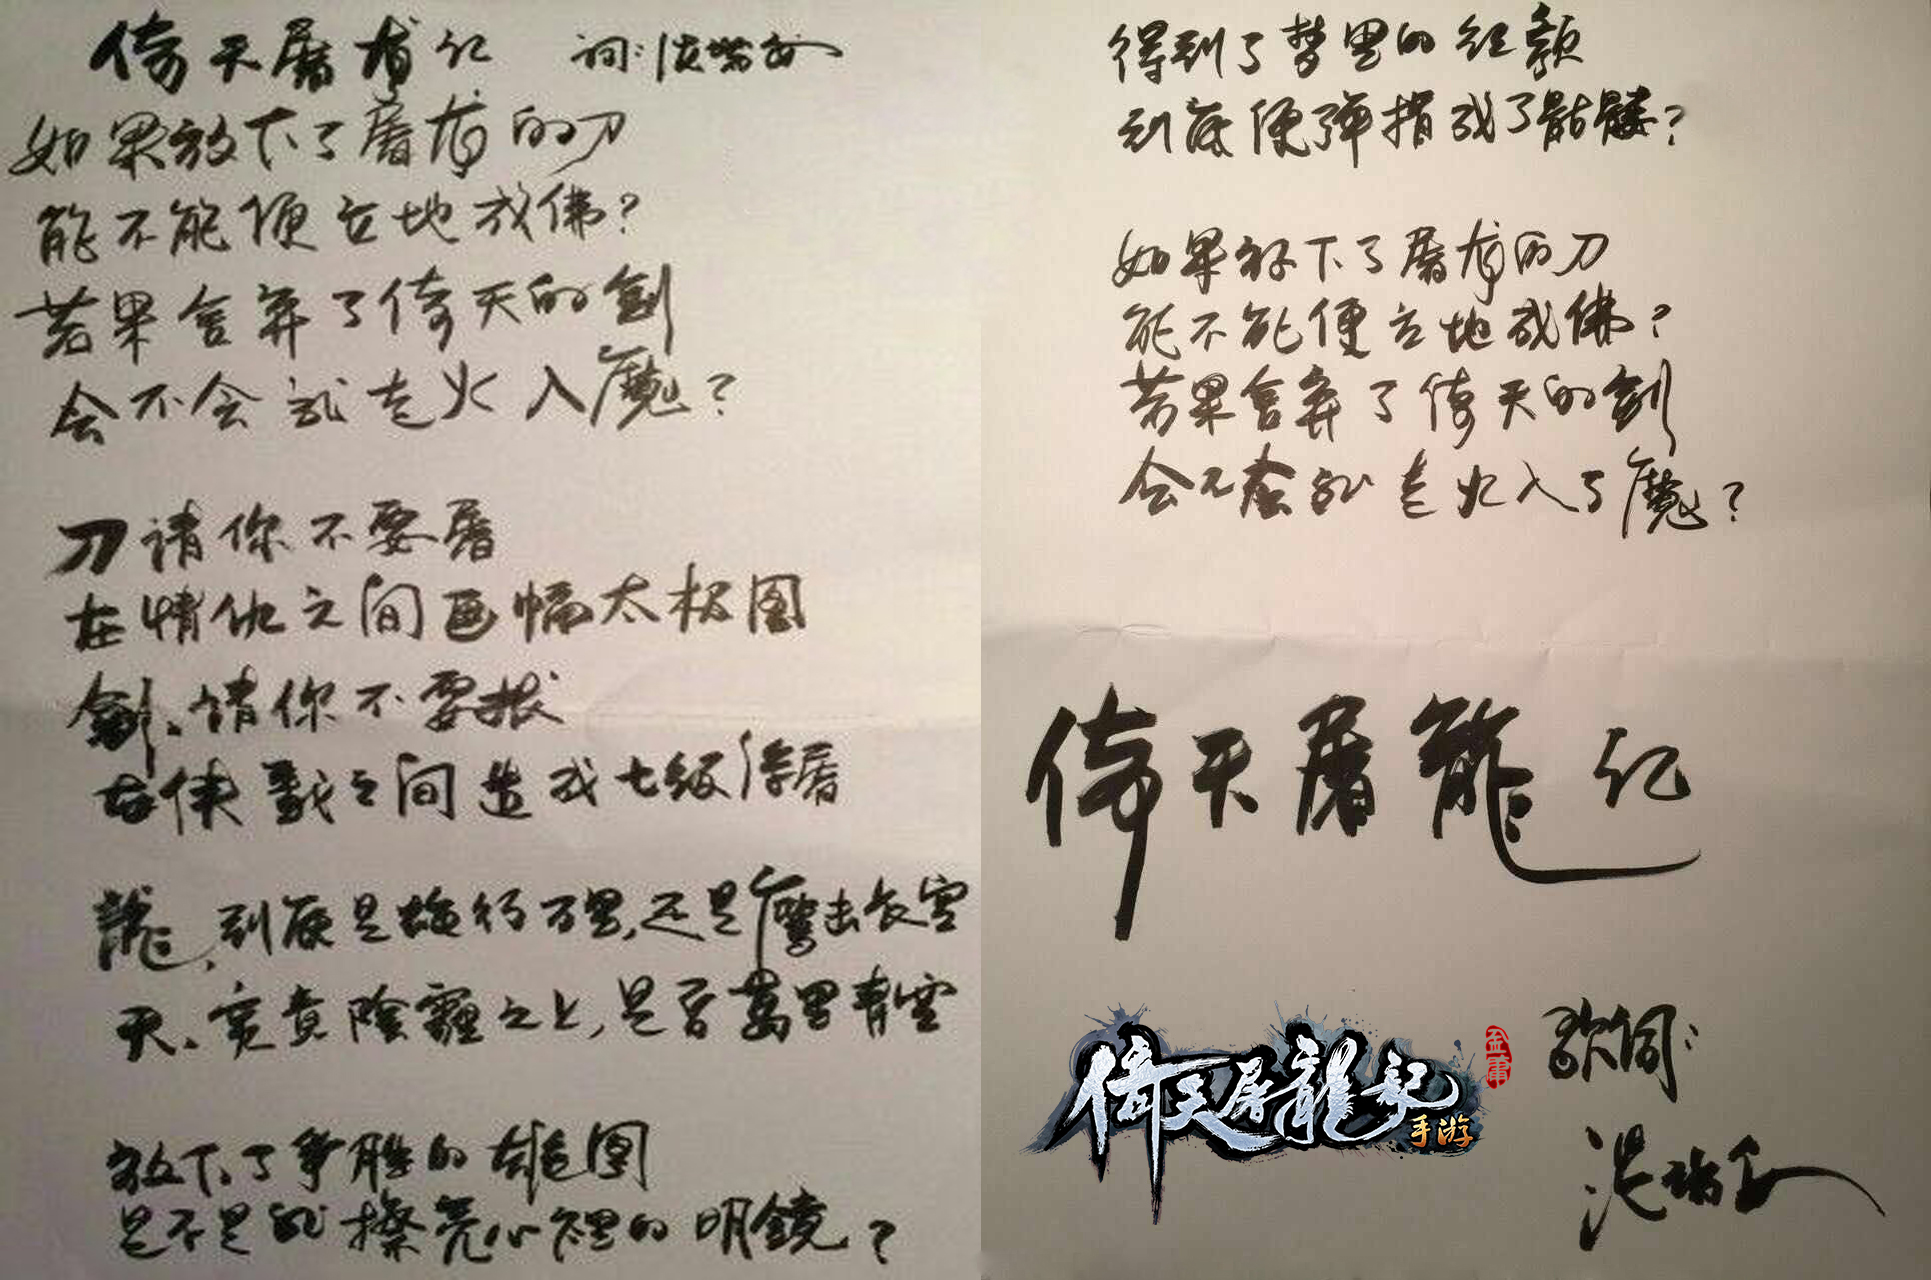 倚天屠龙记 词:
如果放下了屠龙的刀
能不能便立地成佛?
若果舍弃了倚天的剑
会不会就走火入魔?
刀请你不要屠
在情仇之间画幅太极图
剑、请你不要拔
在侠义之间造成七级浮屠
龍,到底是龙行万里,还是鹰击长空
天、究竟阴霾之上,是否萬里青空
放下了争胜的雄图
是不是就擦亮心裡的明鏡?
得到了梦里的红颜
到底便弹指成了骷髅?
如果放下了屠龙的刀
能不能便立地成佛?
若果舍弃了倚天的剑
会不会就走火入了魔?
倚天屠龍记
倚天屠龍记
手游
金庸
歌词: